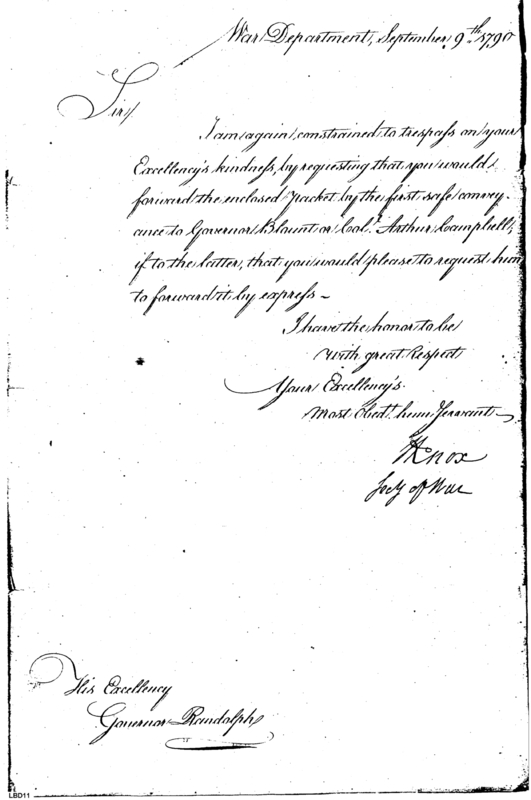 War Department, September 9th 1790
Sir,
I am again constrained to trespass on your
Excellency's kindness, by requesting that you would
forward the enclosed Packet by the first safe convey-
ance to Governor Blount or Colo. Arthur Campbell,
if to the latter, that you would please to request him
to forward it by express -
I have the honor to be
with great Respect
Your Excellency's
Most Obedt. hum Servant
HKnox
Secy of War
His Excellency
Governor Randolph
LBD11